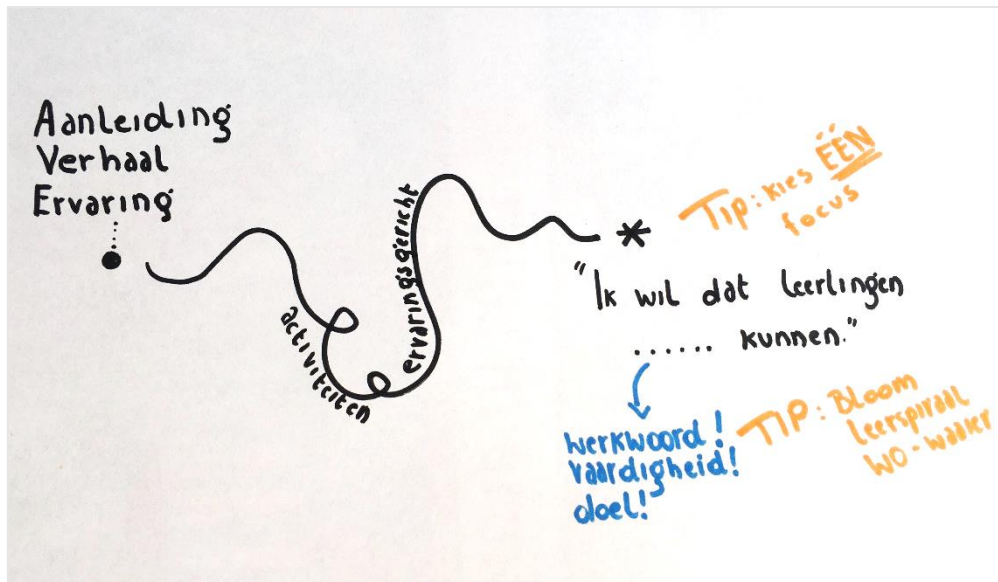 Aanleiding
Verhaal
Ervaring
activiteiten
ervaringsgericht
Tip: kies ÉÉN
focus
"Ik wil dat leerlingen
...... kunnen."
werkwoord!
vaardigheid!
doel!
TIP: Bloom
leerspiraal
WO-waaier